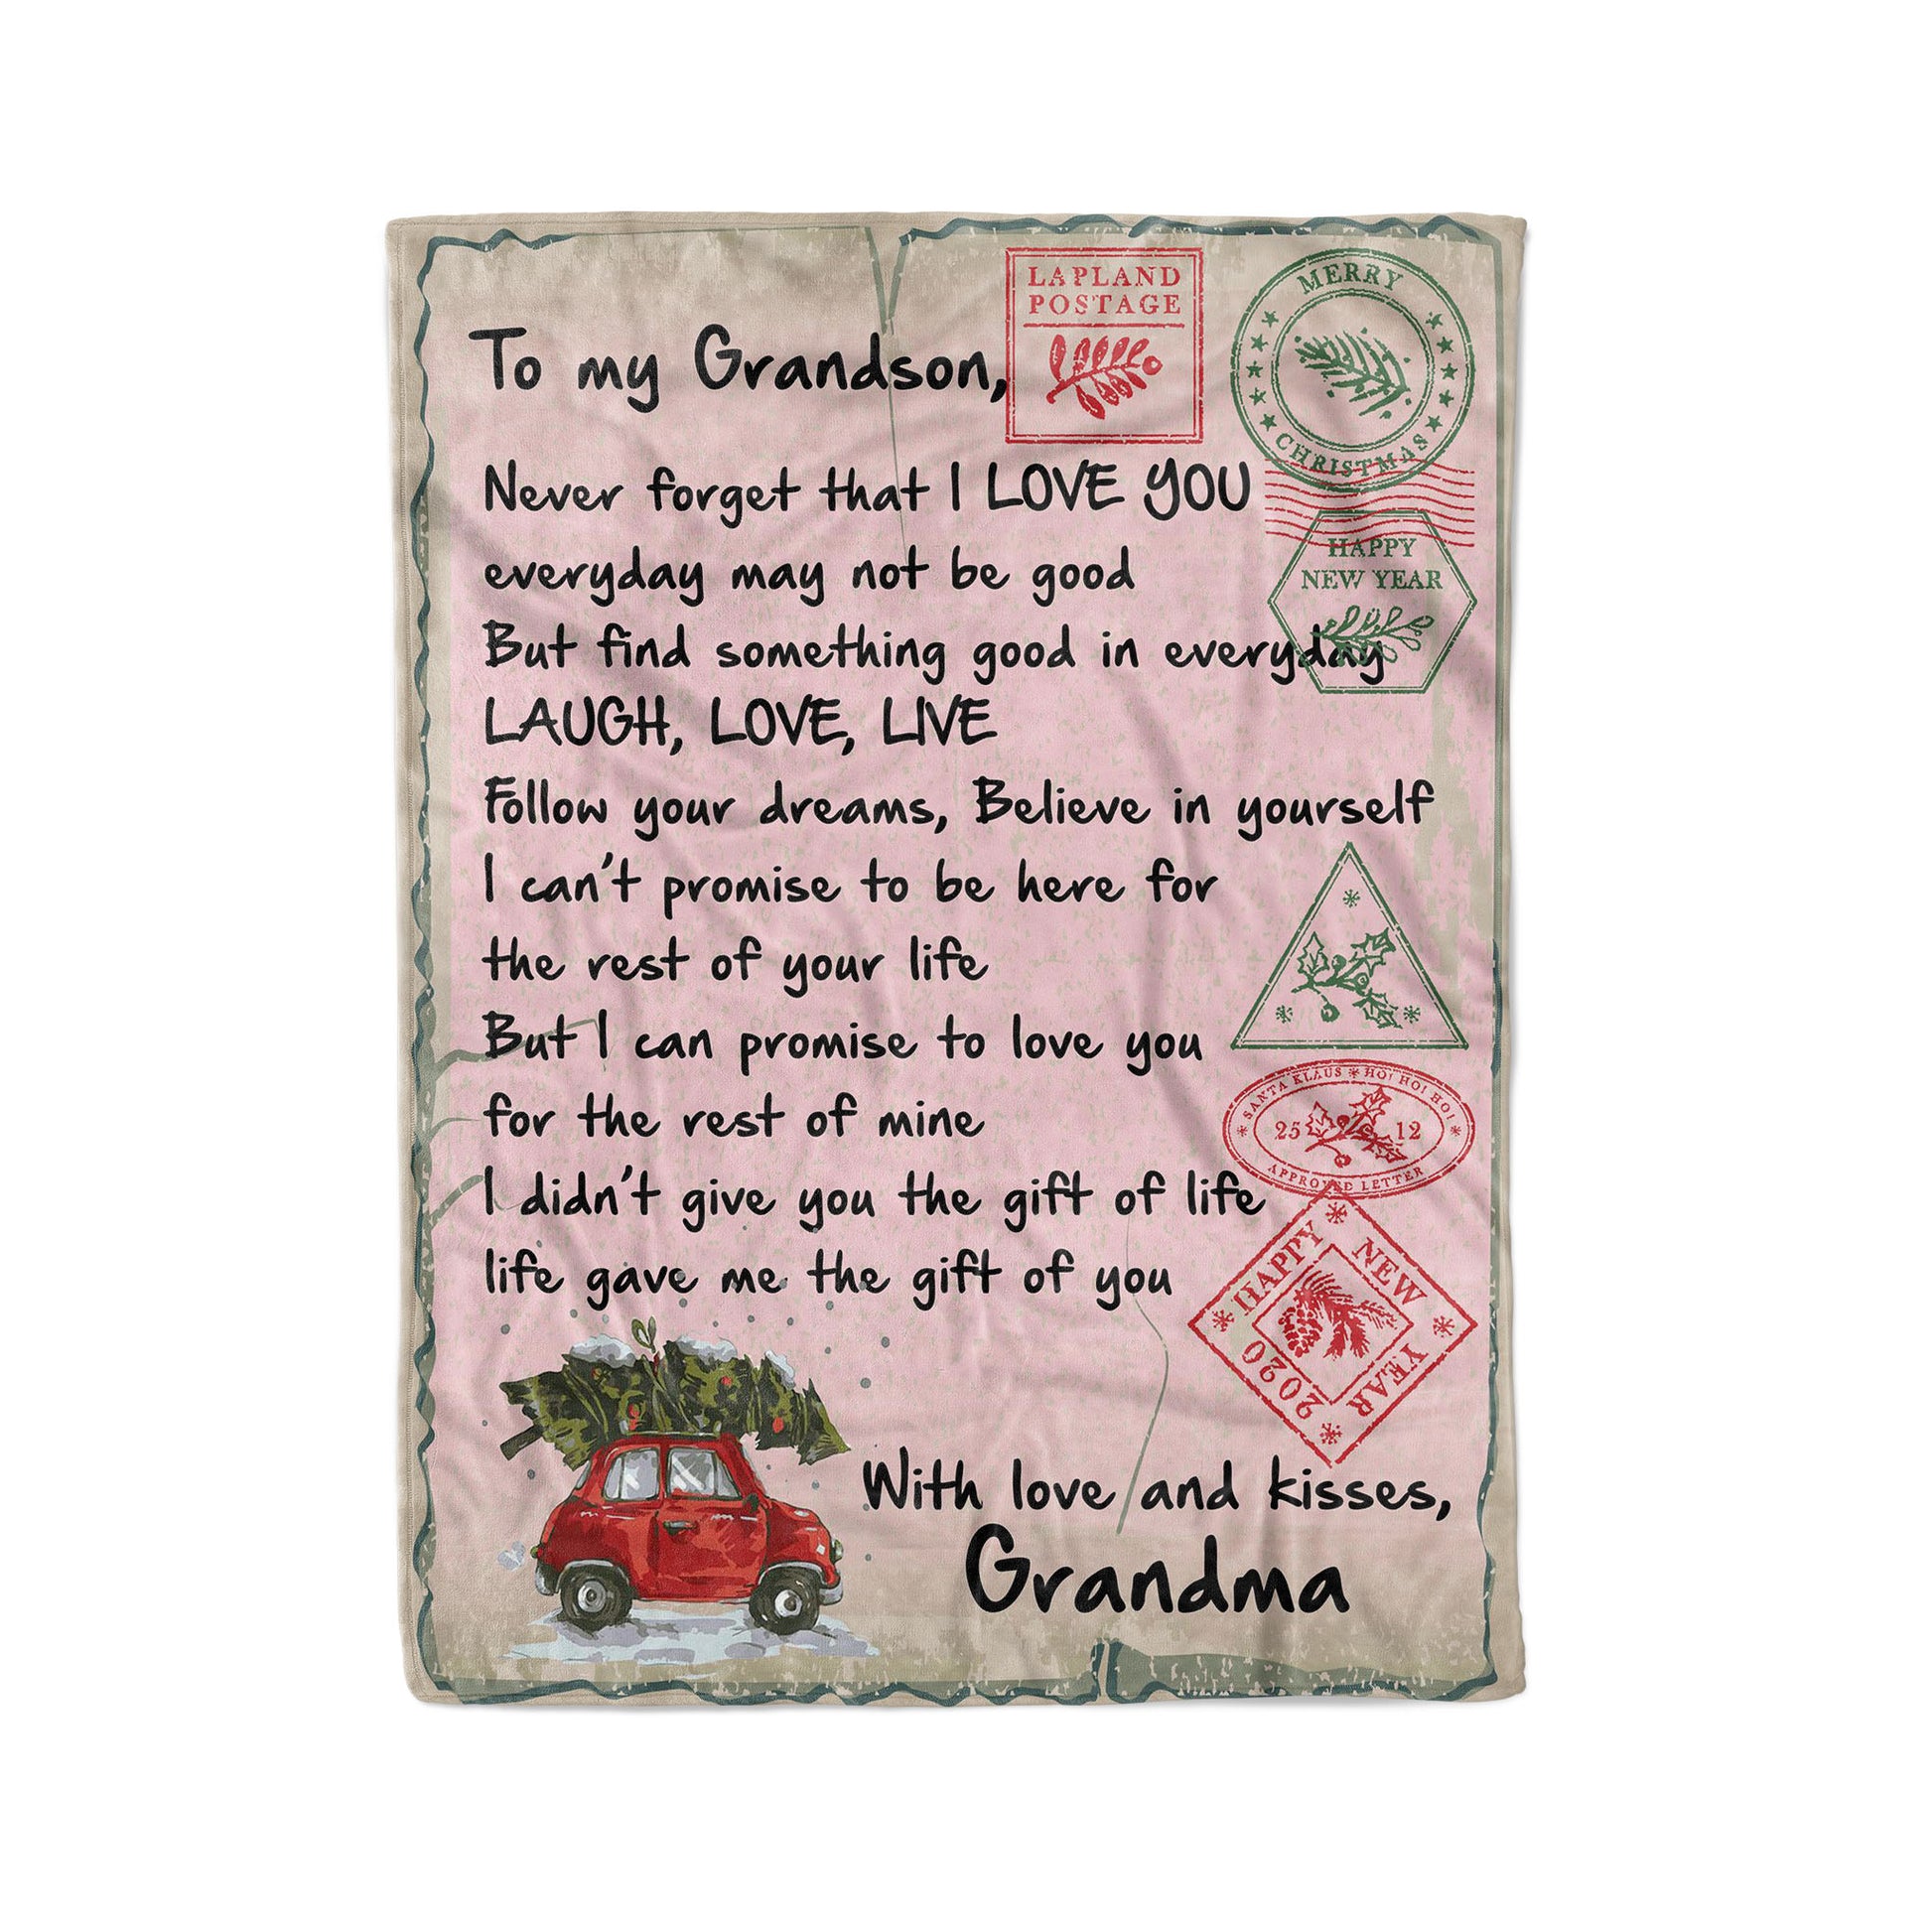 To my Grandson,
LAPLAND
POSTAGE
MERRY
CHRISTMAS
Never forget that I LOVE YOU
HAPPY
NEW YEAR
everyday may not be good
But find something good in everyday
LAUGH, LOVE, LIVE
Follow your dreams, Believe in yourself
I can't promise to be here for
the rest of your life
But I can promise to love you
for the rest of mine
SANTA KLAUS * HO! HO! HO!
25 12
APPROVED LETTER
I didn't give you the gift of life
life gave me the gift of you
HAPPY
NEW
YEAR
2020
With love and kisses,
Grandma